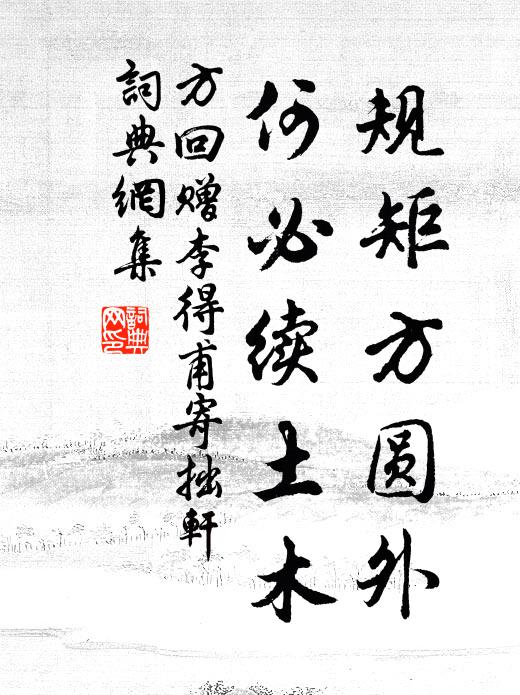 规矩方圆外
何必续土木
方回赠李得甫寄拙軒
詞典網集
詞典
网印